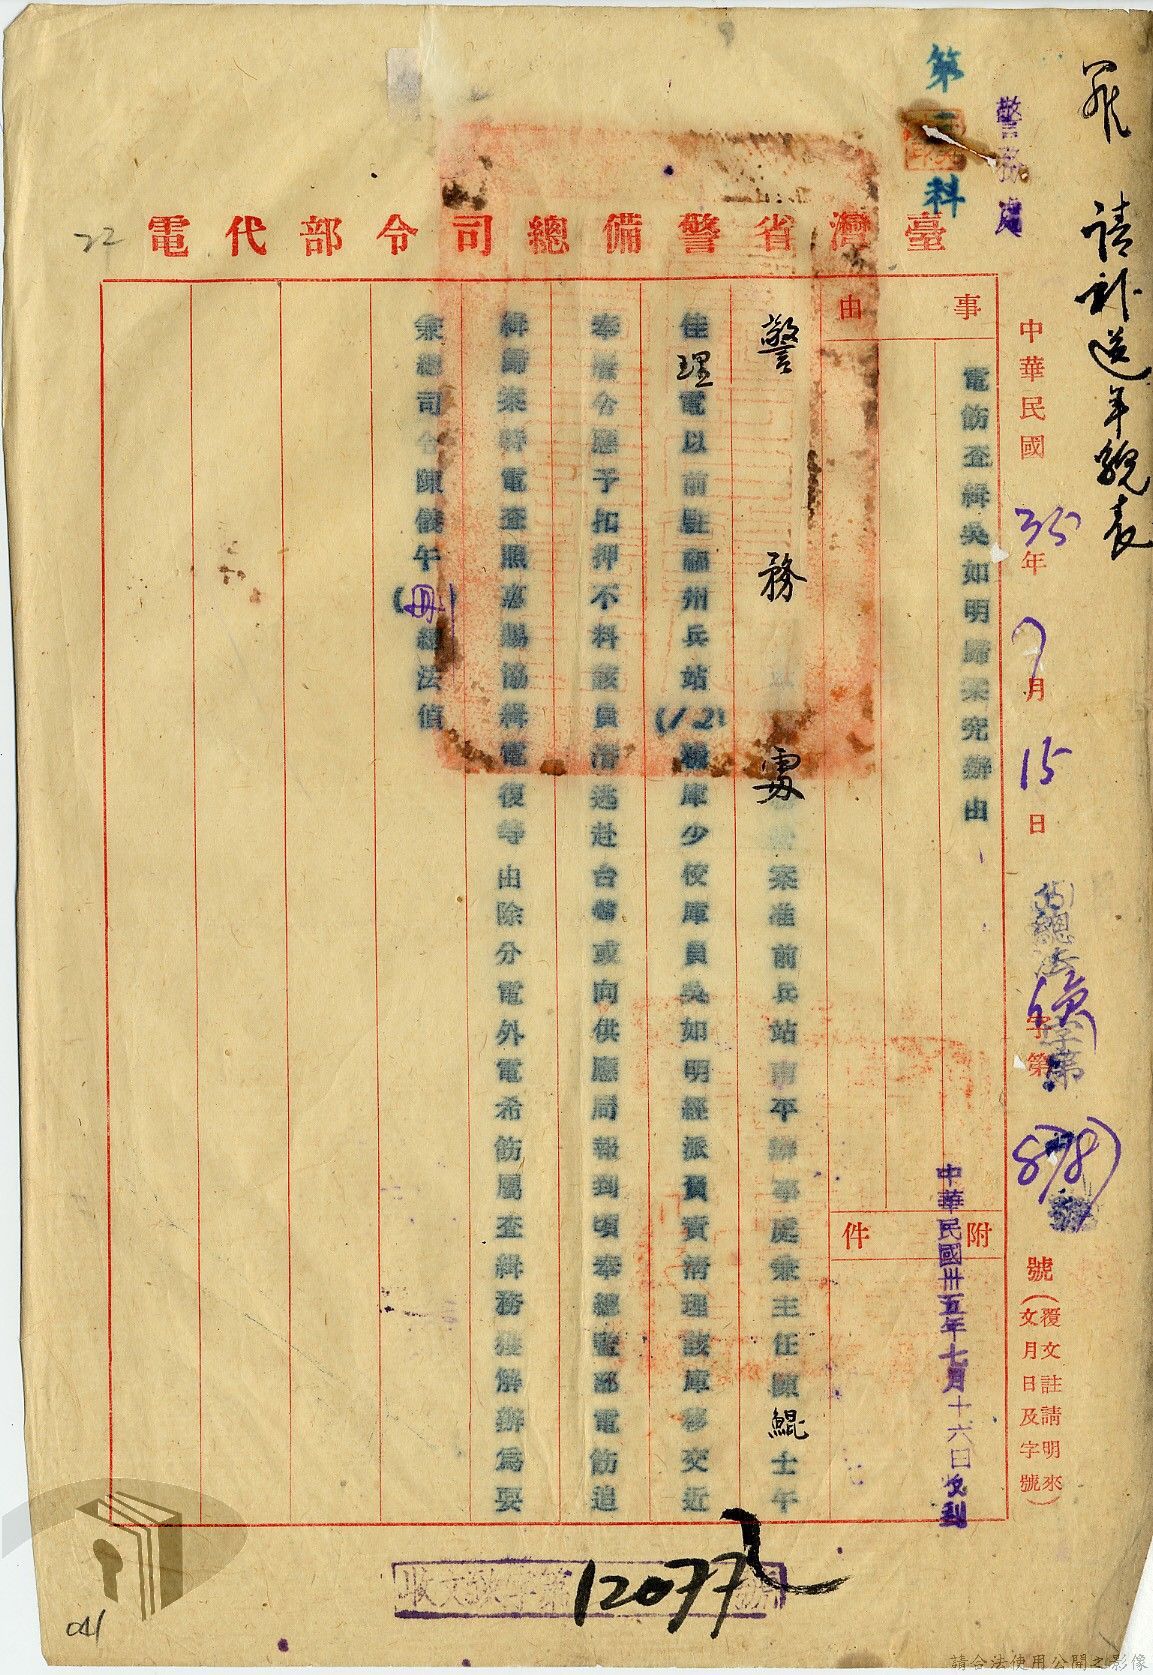 請補送年貌表
警務處
第二科
臺灣省警備總司令部代電
中華民國35年7月15日
總法字第
號(覆文註請明來文月日及字號)
事由
電飭查緝吳如明歸案究辦由
附件
中華民國卅五年七月十六日收到
警務處
案准前兵站南平辦事處兼主任顧鯤士午
佳理電以前駐福州兵站(12)糧庫少校庫員吳如明經派員責清理該庫移交近
奉層令應予扣押不料該員潛逃赴台警或向供應局報到頃奉總監部電飭追
緝歸案特電查照惠賜協緝電復等由除分電外電希飭屬查緝務獲解辦為要
兼總司令陳儀午(冊)總法偵
收文號字第12077號
22
041
請合法使用公開之影像